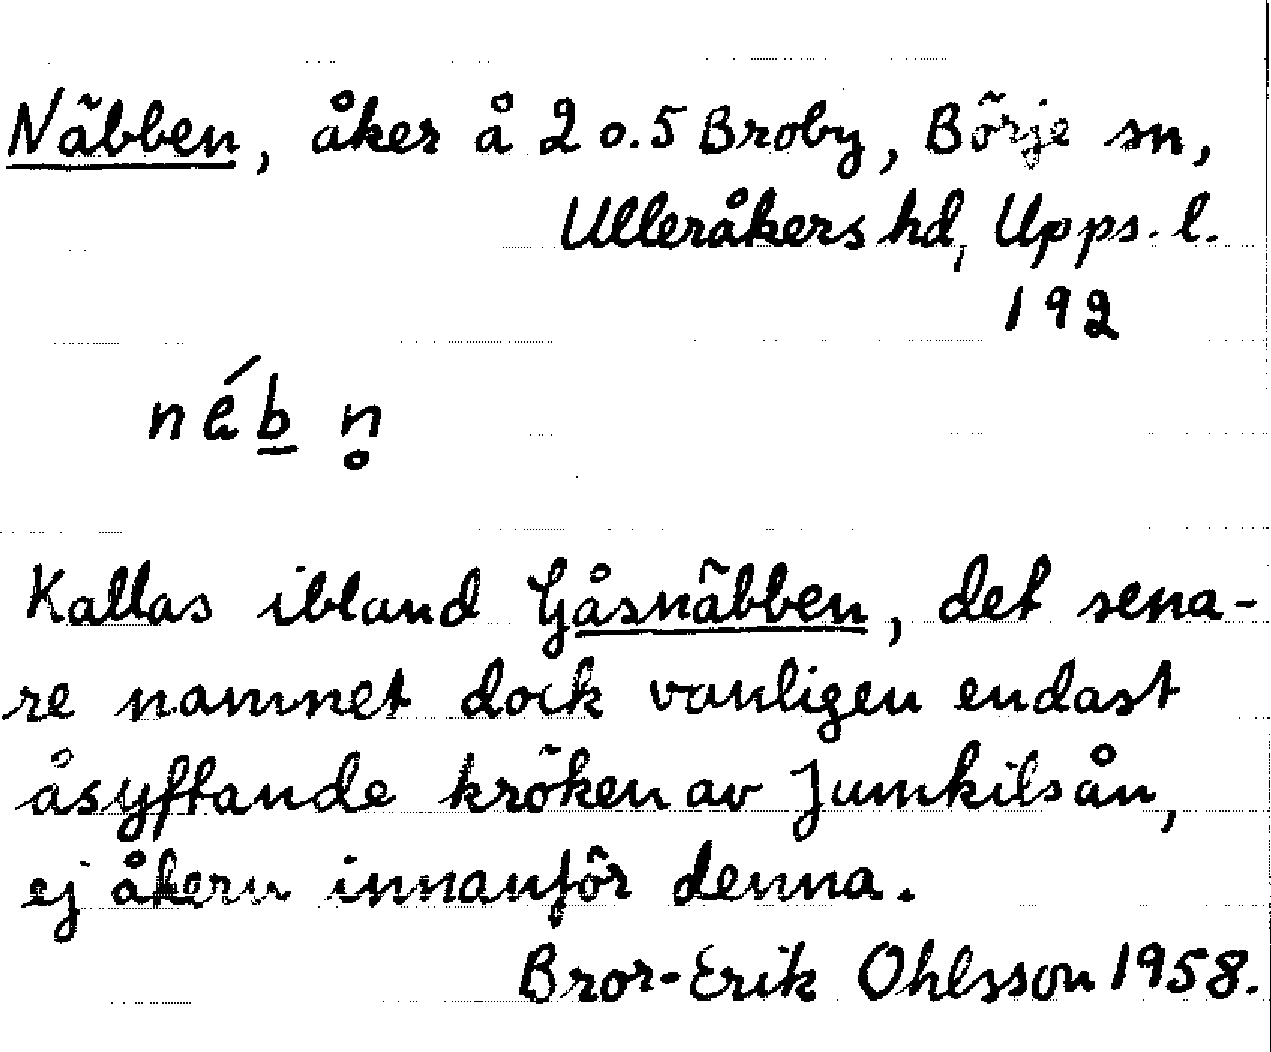 Näbben, åker å 2 o. 5 Broby, Börje sn,
Ulleråkers hd, Upps. l.
192
néb̲ n̥
Kallas ibland Gåsnäbben, det sena-
re namnet dock vanligen endast
åsyftande kröken av Jumkilsån,
ej åkern innanför denna.
Bror-Erik Ohlsson 1958.